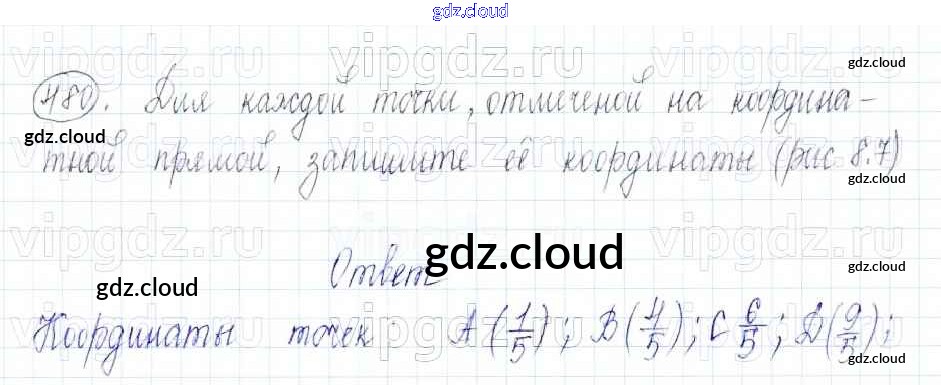 gdz.cloud
vipgdz.ru vipgdz.ru vipgdz
480. Для каждой точки, отмеченой на координа-
gdz.cloud
gdz.cloud
тной прямой, запишите её координаты (рис 8.7)
gdz.cloud
vipgdz.ru vipgdz.ru vipgdz
Ответ
gdz.cloud
gdz.cloud
gdz.cloud
Координаты точек: A(1/5); B(4/5); C 6/5; D(9/5);
vipgdz.ru vipgdz.ru vipgdz
gdz.cloud